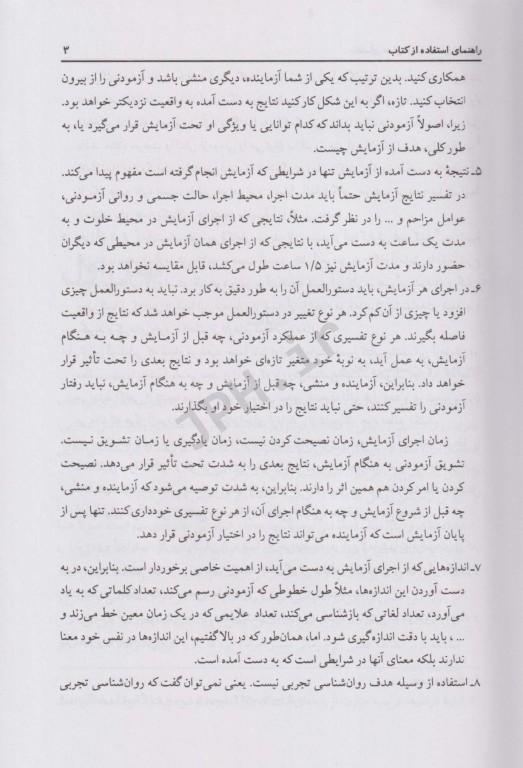 راهنمای استفاده از کتاب ۳
همکاری کنید. بدین ترتیب که یکی از شما آزماینده، دیگری منشی باشد و آزمودنی را از بیرون
انتخاب کنید. تازه، اگر به این شکل کار کنید نتایج به دست آمده به واقعیت نزدیکتر خواهد بود.
زیرا، اصولاً آزمودنی نباید بداند که کدام توانایی یا ویژگی او تحت آزمایش قرار می‌گیرد یا، به
طور کلی، هدف از آزمایش چیست.
۵ـ نتیجهٔ به دست آمده از آزمایش تنها در شرایطی که آزمایش انجام گرفته است مفهوم پیدا می‌کند.
در تفسیر نتایج آزمایش حتماً باید مدت اجرا، محیط اجرا، حالت جسمی و روانی آزمودنی،
عوامل مزاحم و ... را در نظر گرفت. مثلاً، نتایجی که از اجرای آزمایش در محیط خلوت و به
مدت یک ساعت به دست می‌آید، با نتایجی که از اجرای همان آزمایش در محیطی که دیگران
حضور دارند و مدت آزمایش نیز ۱/۵ ساعت طول می‌کشد، قابل مقایسه نخواهد بود.
۶ـ در اجرای هر آزمایش، باید دستورالعمل آن را به طور دقیق به کار برد. نباید به دستورالعمل چیزی
افزود یا چیزی از آن کم کرد. هر نوع تغییر در دستورالعمل موجب خواهد شد که نتایج از واقعیت
فاصله بگیرند. هر نوع تفسیری که از عملکرد آزمودنی، چه قبل از آزمایش و چه به هنگام
آزمایش، به عمل آید، به نوبهٔ خود متغیر تازه‌ای خواهد بود و نتایج بعدی را تحت تأثیر قرار
خواهد داد. بنابراین، آزماینده و منشی، چه قبل از آزمایش و چه به هنگام آزمایش، نباید رفتار
آزمودنی را تفسیر کنند، حتی نباید نتایج را در اختیار خود او بگذارند.
زمان اجرای آزمایش، زمان نصیحت کردن نیست، زمان یادگیری یا زمان تشویق نیست.
تشویق آزمودنی به هنگام آزمایش، نتایج بعدی را به شدت تحت تأثیر قرار می‌دهد. نصیحت
کردن یا امر کردن هم همین اثر را دارند. بنابراین، به شدت توصیه می‌شود که آزماینده و منشی،
چه قبل از شروع آزمایش و چه به هنگام اجرای آن، از هر نوع تفسیری خودداری کنند. تنها پس از
پایان آزمایش است که آزماینده می‌تواند نتایج را در اختیار آزمودنی قرار دهد.
۷ـ اندازه‌هایی که از اجرای آزمایش به دست می‌آید، از اهمیت خاصی برخوردار است. بنابراین، در به
دست آوردن این اندازه‌ها، مثلاً طول خطوطی که آزمودنی رسم می‌کند، تعداد کلماتی که به یاد
می‌آورد، تعداد لغاتی که بازشناسی می‌کند، تعداد علایمی که در یک زمان معین خط می‌زند و
... ، باید با دقت اندازه‌گیری شود. اما، همان‌طور که در بالا گفتیم، این اندازه‌ها در نفس خود معنا
ندارند بلکه معنای آنها در شرایطی است که به دست آمده است.
۸ـ استفاده از وسیله هدف روان‌شناسی تجربی نیست. یعنی نمی‌توان گفت که روان‌شناسی تجربی
JPH.ir